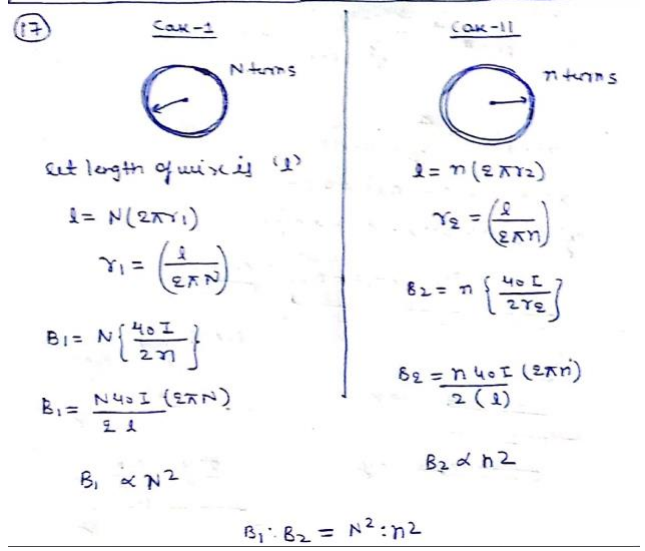 17
Case-1
N turns
Let length of wire is 'l'
l = N(2πr₁)
r₁ = (l / 2πN)
B₁ = N{μ₀I / 2r₁}
B₁ = Nμ₀I (2πN) / 2l
B₁ ∝ N²
Case-II
n turns
l = n(2πr₂)
r₂ = (l / 2πn)
B₂ = n{μ₀I / 2r₂}
B₂ = nμ₀I (2πn) / 2(l)
B₂ ∝ n²
B₁ : B₂ = N² : n²